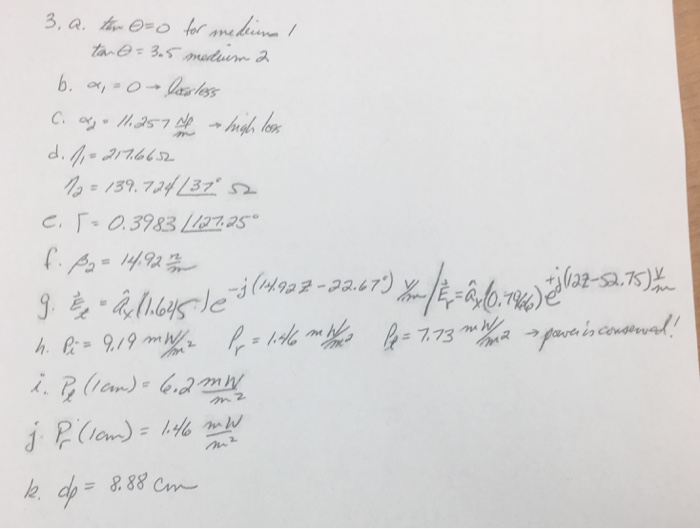 3. a. tan θ=0 for medium 1
tan θ = 3.5 medium 2
b. α₁ = 0 → lossless
c. α₂ = 11.257 Np/m → high loss
d. η₁ = 217.66 Ω
η₂ = 139.724 ∠37° Ω
e. Γ = 0.3983 ∠127.25°
f. β₂ = 14.92 r/m
g. E⃗t = âx(1.645)e^-j(14.92z-22.67°) V/m / E⃗r = âx(0.7966)e^+j(12z-52.75) V/m
h. Pi = 9.19 mW/m² Pr = 1.46 mW/m² Pt = 7.73 mW/m² → power is conserved!
i. Pt (1cm) = 6.2 mW/m²
j. Pr (1cm) = 1.46 mW/m²
k. dp = 8.88 cm